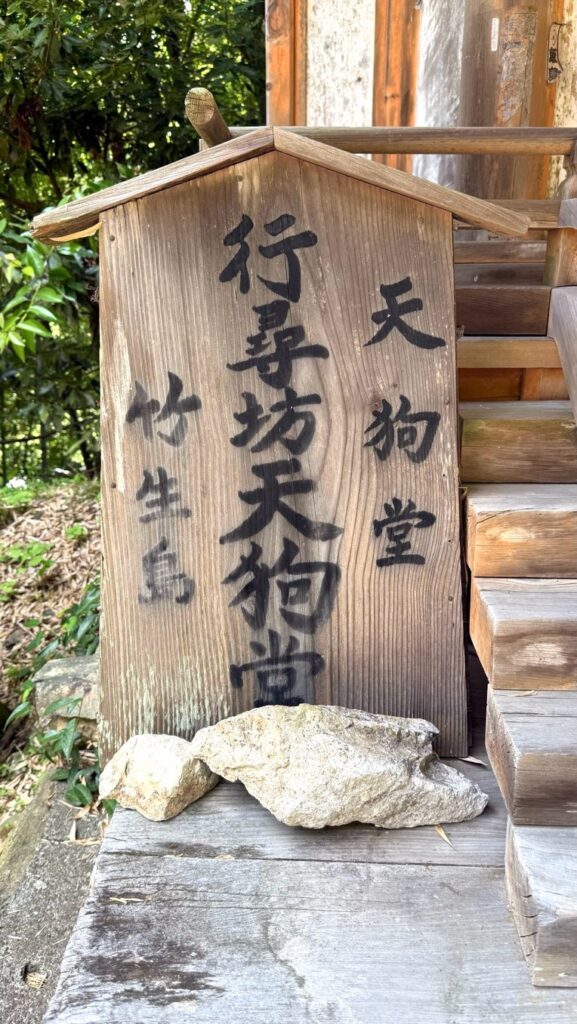 天狗堂
行尋坊天狗堂
竹生島